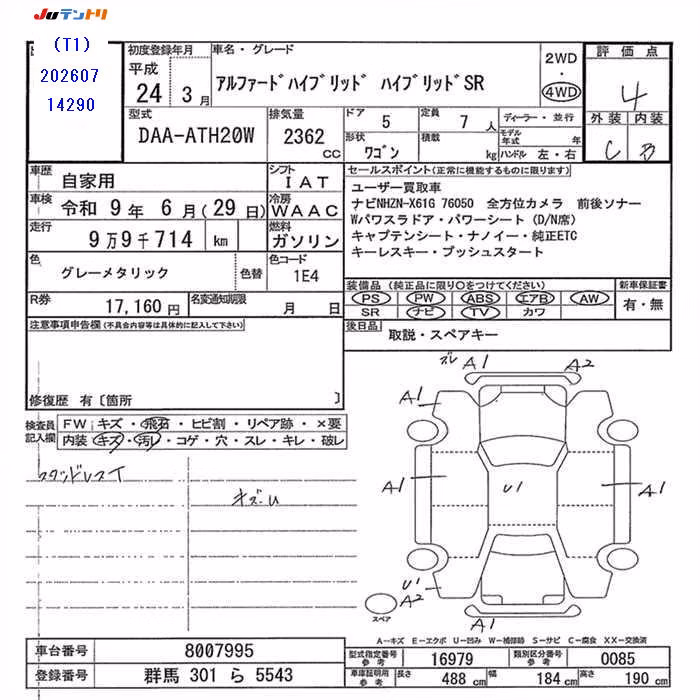 Juテントリ
(T1)
202607
14290
初度登録年月
平成
24 3月
車名・グレード
アルファードハイブリッド ハイブリッドSR
2WD
・
4WD
評価点
4
外装 内装
C B
型式
DAA-ATH20W
排気量
2362
CC
ドア
5
定員
7人
形状
ワゴン
積載
kg
ディーラー・並行
モデル年式 年
ハンドル 左・右
車歴
自家用
シフト
IAT
車検
令和 9年 6月(29日)
冷房
WAAC
走行
9万9千714 km
燃料
ガソリン
色
グレーメタリック
色替
色コード
1E4
R券
17,160円
名変通知期限
月 日
セールスポイント(正常に機能するものに限ります)
ユーザー買取車
ナビNHZN-X61G 76050 全方位カメラ 前後ソナー
Wパワスラドア・パワーシート(D/N席)
キャプテンシート・ナノイー・純正ETC
キーレスキー・プッシュスタート
装備品(純正品に限り○をつけてください)
PS PW ABS エアB AW
SR ナビ TV カワ
新車保証書
有・無
後日品
取説・スペアキー
注意事項申告欄(不具合内容等は具体的に記入して下さい)
修復歴 有〔箇所 〕
検査員記入欄
FW キズ・飛石・ヒビ割・リペア跡・×要
内装 キズ・汚レ・コゲ・穴・スレ・キレ・破レ
スタッドレスT
キズU
ズレ A1 A2
A1
A1 U1 A1
U1
A2
A1
スペア
A-キズ E-エクボ U-凹み W-補修跡 S-サビ C-腐食 XX-交換済
車台番号
8007995
登録番号
群馬 301 ら 5543
型式指定番号
参考
16979
類別区分番号
参考
0085
車庫証明用
参考
長さ
488 cm
幅
184 cm
高さ
190 cm